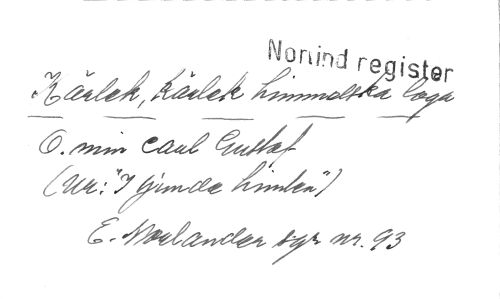 Norlind register
Kärlek, Kärlek himmelska låga
O. min Carl Gustaf
(Ur: "I
E. Norlander sgr nr. 93